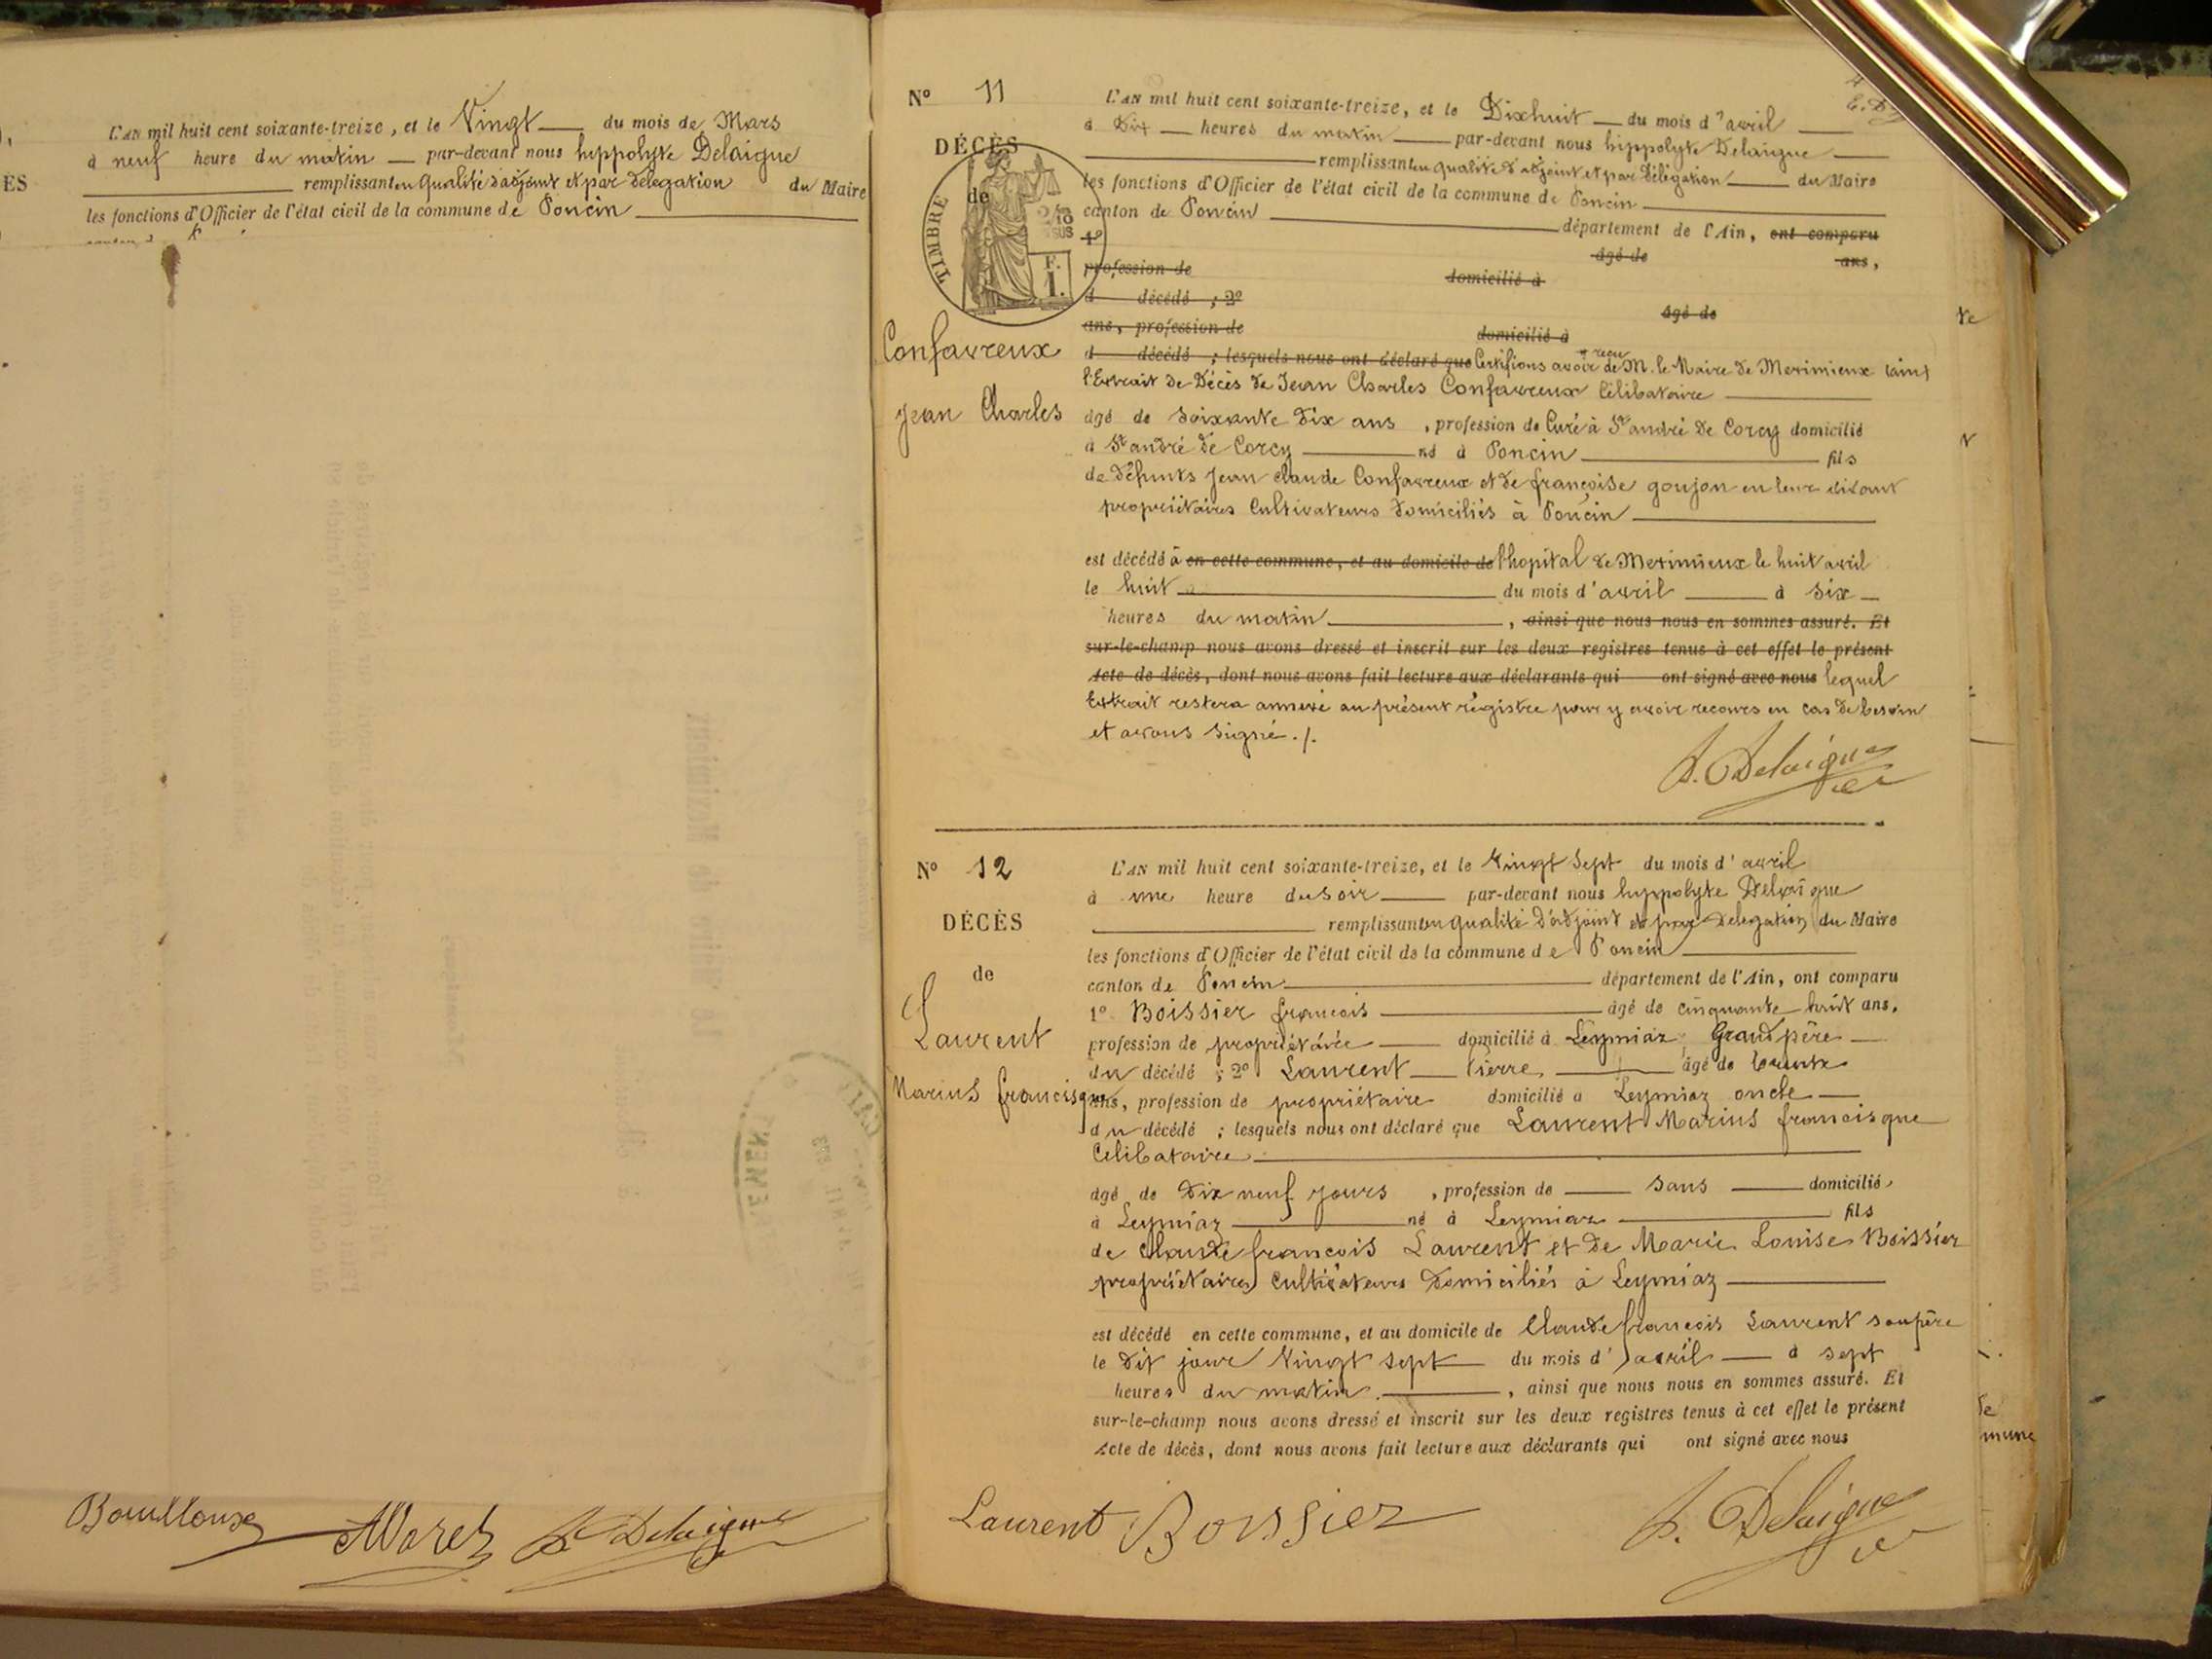 ÈS
L'AN mil huit cent soixante-treize, et le Vingt du mois de Mars
à neuf heure du matin par-devant nous hyppolyte Delaigue
remplissant en qualité d'adjoint et par délégation du Maire
les fonctions d'Officier de l'état civil de la commune de Poncin
Bouilloux Morel H. Delaigue
N° 11
DÉCÈS
de
TIMBRE
Confavreux
Jean Charles
L'AN mil huit cent soixante-treize, et le Dixhuit du mois d'avril
à Dix heures du matin par-devant nous hippolyte Delaigue
remplissant en qualité d'adjoint et par délégation du Maire
les fonctions d'Officier de l'état civil de la commune de Poncin
canton de Poncin département de l'Ain, ont comparu
1° âgé de ans,
profession de domicilié à
d décédé ; 2° âgé de
ans, profession de domicilié à
d décédé ; lesquels nous ont déclaré que Certifions avoir reçu de M. le Maire de Meximieux (ain)
l'Extrait de Décès de Jean Charles Confavreux Célibataire
âgé de Soixante Dix ans , profession de Curé à St andré de Corcy domicilié
à St andré de Corcy né à Poncin fils
de Défunts Jean claude Confavreux et de françoise goujon en leur vivant
propriétaires Cultivateurs domiciliés à Poncin
est décédé à en cette commune, et au domicile de l'hopital de Meximieux le huit avril
le huit du mois d'avril à six
heures du matin , ainsi que nous nous en sommes assuré. Et
sur-le-champ nous avons dressé et inscrit sur les deux registres tenus à cet effet le présent
acte de décès, dont nous avons fait lecture aux déclarants qui ont signé avec nous lequel
Extrait restera annexé au présent régistre pour y avoir recours en cas de besoin
et avons signé ./.
H. Delaigue
N° 12
DÉCÈS
de
Laurent
Marius francisque
L'AN mil huit cent soixante-treize, et le Vingt Sept du mois d'avril
à une heure du soir par-devant nous hyppolyte Delaigue
remplissant en qualité D'adjoint et par délégation du Maire
les fonctions d'Officier de l'état civil de la commune de Poncin
canton de Poncin département de l'Ain, ont comparu
1° Boissier francois âgé de cinquante huit ans,
profession de propriétaire domicilié à Leymiaz Grand père
du décédé ; 2° Laurent Pierre âgé de trente
ans, profession de propriétaire domicilié à Leymiaz oncle
du décédé ; lesquels nous ont déclaré que Laurent Marius francisque
Celibataire
âgé de Dix neuf jours , profession de sans domicilié
à Leymiaz né à Leymiaz fils
de Claude francois Laurent et de Marie Louise Boissier
propriétaires Cultivateurs Domiciliés à Leymiaz
est décédé en cette commune, et au domicile de Claude francois Laurent son père
le dit jour Vingt sept du mois d'avril à sept
heures du matin , ainsi que nous nous en sommes assuré. Et
sur-le-champ nous avons dressé et inscrit sur les deux registres tenus à cet effet le présent
acte de décès, dont nous avons fait lecture aux déclarants qui ont signé avec nous
Laurent Boissier H. Delaigue